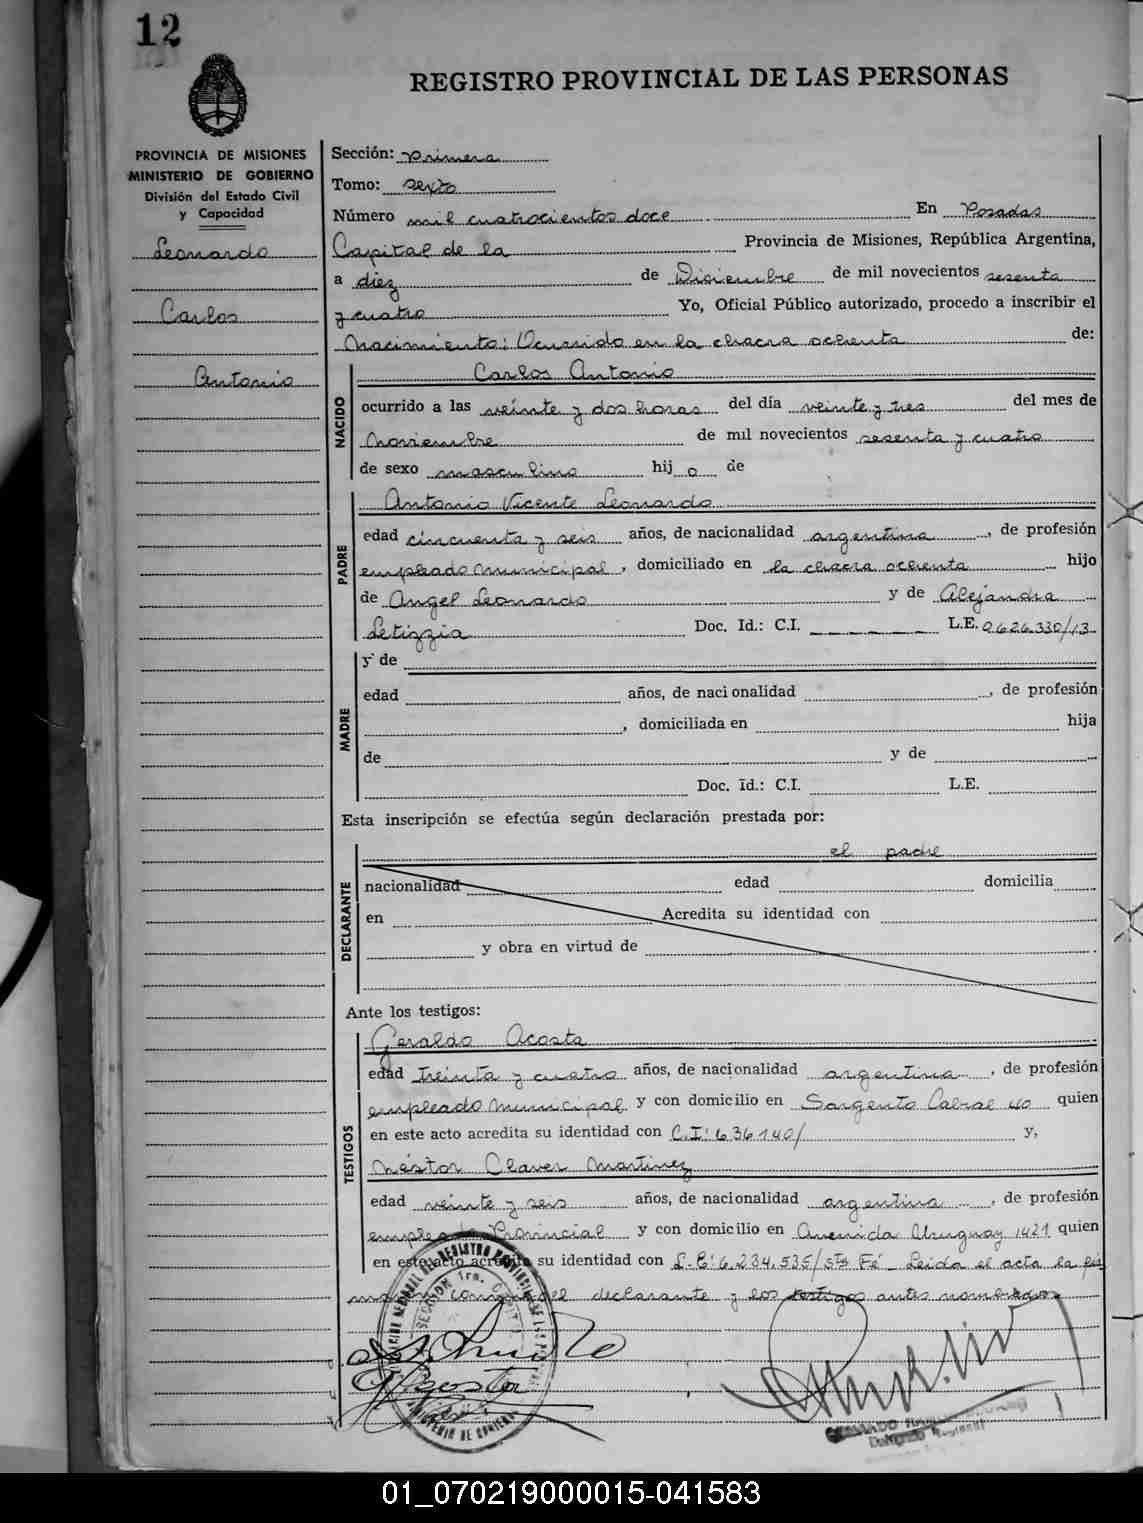 12
REGISTRO PROVINCIAL DE LAS PERSONAS
PROVINCIA DE MISIONES
MINISTERIO DE GOBIERNO
División del Estado Civil
y Capacidad
Leonardo
Carlos
Antonio
Sección: Primera
Tomo: sexto
Número mil cuatrocientos doce En Posadas
Capital de la Provincia de Misiones, República Argentina,
a diez de Diciembre de mil novecientos sesenta
y cuatro Yo, Oficial Público autorizado, procedo a inscribir el
Nacimiento: Ocurrido en la chacra ochenta de:
NACIDO
Carlos Antonio
ocurrido a las veinte y dos horas del día veinte y tres del mes de
Noviembre de mil novecientos sesenta y cuatro
de sexo masculino hij o de
PADRE
Antonio Vicente Leonardo
edad cincuenta y seis años, de nacionalidad argentina, de profesión
empleado municipal, domiciliado en la chacra ochenta hijo
de Angel Leonardo y de Alejandra
Letizzia Doc. Id.: C.I. _ _ _ _ _ _ L.E. 0626.330/13
MADRE
y de
edad años, de nacionalidad , de profesión
, domiciliada en hija
de y de
Doc. Id.: C.I. L.E.
Esta inscripción se efectúa según declaración prestada por:
DECLARANTE
el padre
nacionalidad edad domicilia
en Acredita su identidad con
y obra en virtud de
Ante los testigos:
TESTIGOS
Geraldo Acosta
edad treinta y cuatro años, de nacionalidad argentina, de profesión
empleado municipal y con domicilio en Sargento Cabral 40 quien
en este acto acredita su identidad con C.I: 636140/ y,
Néstor Claver Martinez
edad veinte y seis años, de nacionalidad argentina, de profesión
empleado Provincial y con domicilio en Avenida Uruguay 1421 quien
en este acto acredita su identidad con L.E: 6.234.535/Sta Fé - Leida el acta la fir
man conmigo el declarante y los testigos antes nombrados
01_070219000015-041583